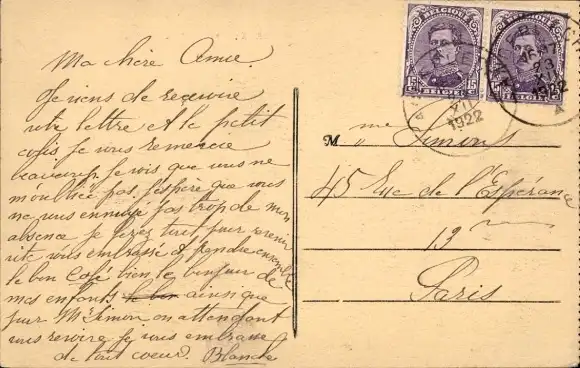 Ma chère Amie.
Je viens de recevoire
votre lettre et le petit
colis je vous remercie
beaucoup je vois que vous ne
m'oubliée pas j'éspère que vous
ne vous ennuyé pas trop de mon
absence je ferez tout pour revenir
vite vous embrassé et prendre ensemble
le bon Café bien le bonjour de
mes enfants ainsi que
pour Mr Simon en attendant
vous revoire je vous embrasse
de tout coeur. Blanche
BELGIQUE BELGIQUE
15 15
BELGIË BELGIË
XII
1922
XII
1922
Mme Simons
45 Rue de l'Espérance
13
Paris